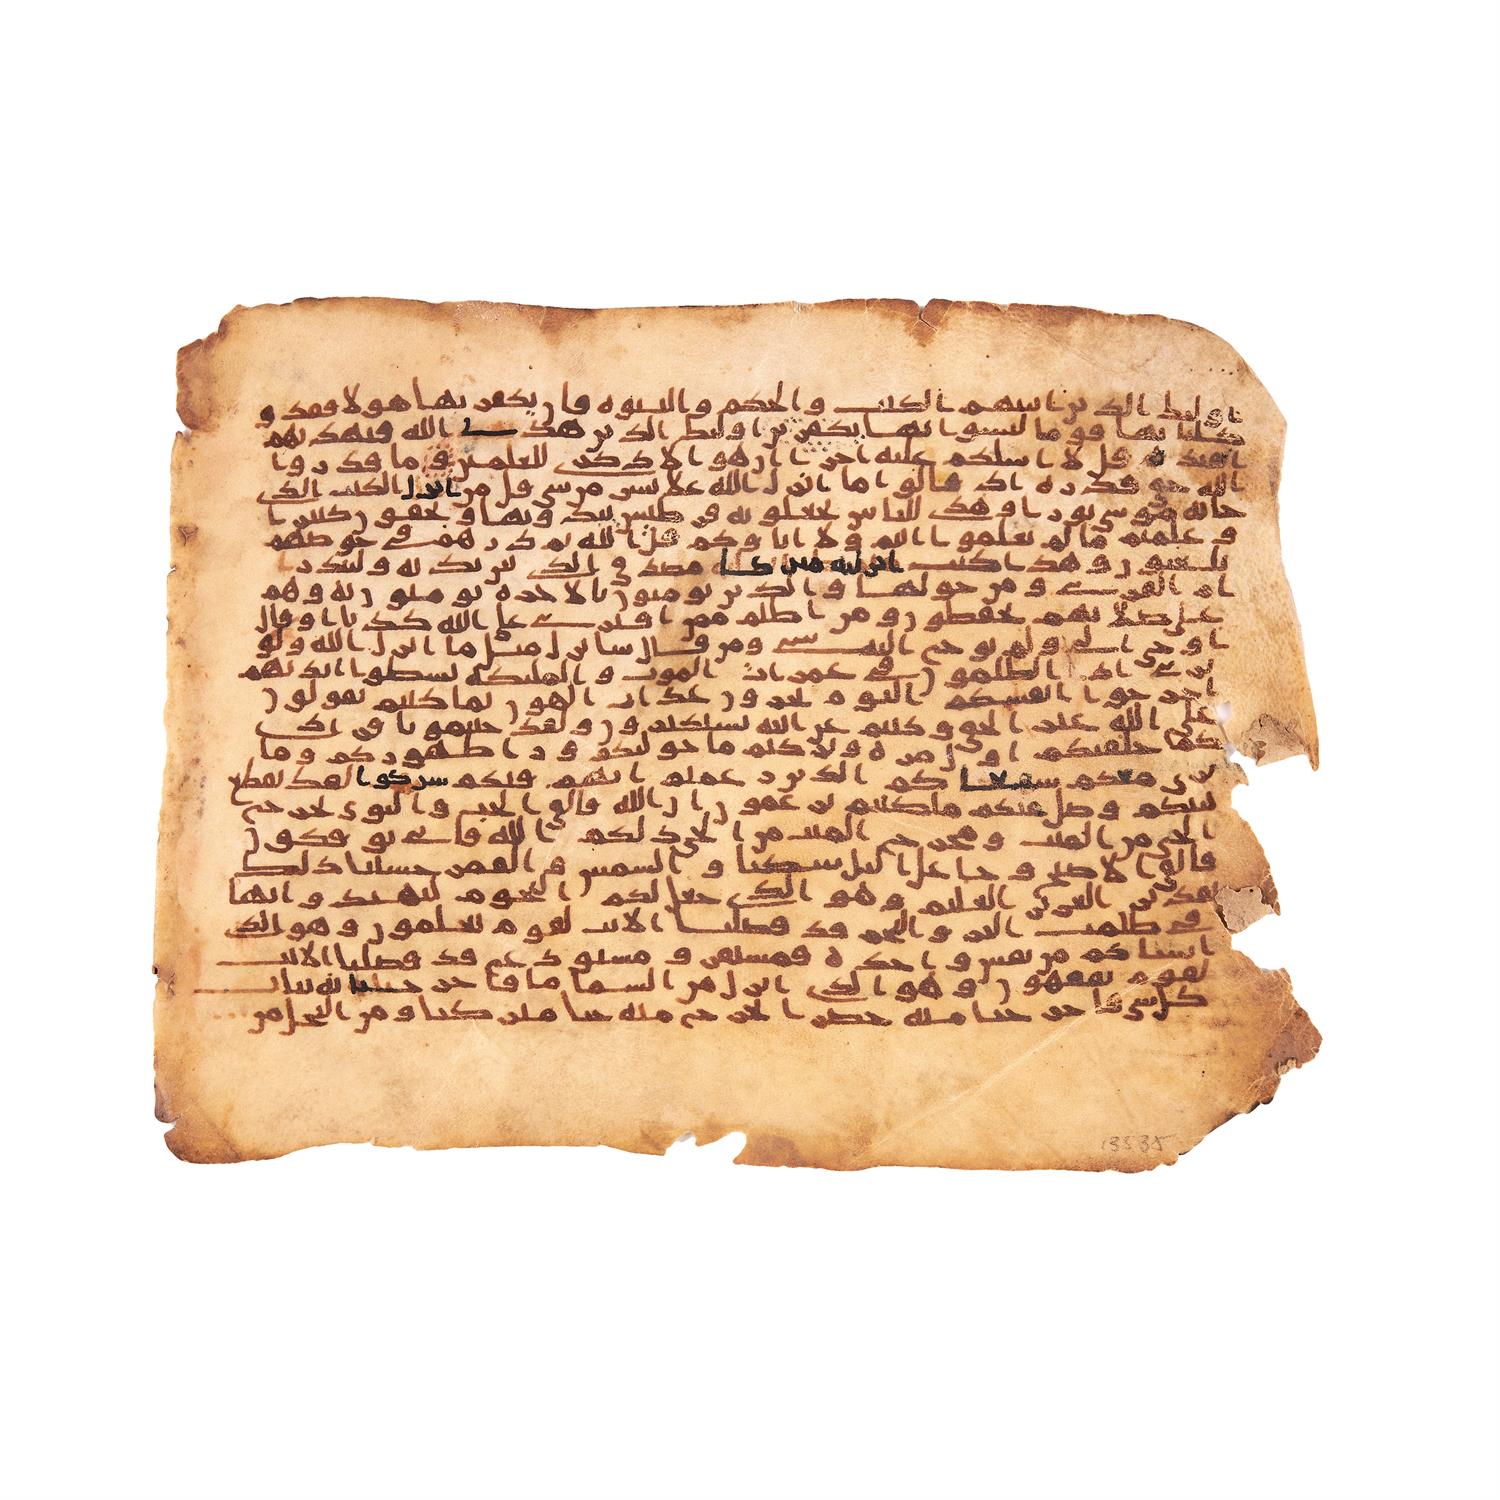 اولئك الذين اتينهم الكتب والحكم والنبوه فان يكفر بها هولا فقد و
كلنا بها قوما ليسوا بها بكفرين اولئك الذين هدى الله فبهديهم
اقتده قل لا اسلكم عليه اجرا ان هو الا ذكرى للعلمين وما قدروا
الله حق قدره اذ قالوا ما انزل الله على بشر من شى قل من انزل الكتب الذى
جا به موسى نورا وهدى للناس تجعلونه قرطيس تبدونها وتخفون كثيرا
وعلمتم ما لم تعلموا انتم ولا اباوكم قل الله ثم ذرهم في خوضهم
يلعبون وهذا كتب انزلنه مبرك مصدق الذى بين يديه ولتنذر
ام القرى ومن حولها والذين يومنون بالاخره يومنون به وهم
على صلاتهم يحفظون ومن اظلم ممن افترى على الله كذبا او قال
اوحى الى ولم يوح اليه شى ومن قال سانزل مثل ما انزل الله ولو
ترى اذ الظلمون في غمرات الموت والمليكه بسطوا ايديهم
اخرجوا انفسكم اليوم تجزون عذاب الهون بما كنتم تقولون
على الله غير الحق وكنتم عن ايته تستكبرون ولقد جيتمونا فردى
كما خلقنكم اول مره وتركتم ما خولنكم ورا ظهوركم وما
نرى معكم شفعاكم الذين زعمتم انهم فيكم شركوا لقد تقطع
بينكم وضل عنكم ما كنتم تزعمون ان الله فالق الحب والنوى يخرج
الحى من الميت ومخرج الميت من الحى ذلكم الله فانى توفكون
فالق الاصبح وجاعل اليل سكنا والشمس والقمر حسبنا ذلك
تقدير العزيز العليم وهو الذى جعل لكم النجوم لتهتدوا بها
في ظلمت البر والبحر قد فصلنا الايت لقوم يعلمون وهو الذى
انشاكم من نفس واحده فمستقر ومستودع قد فصلنا الايت
لقوم يفقهون وهو الذى انزل من السما ما فاخرجنا به نبات
كل شى فاخرجنا منه خضرا نخرج منه حبا متركبا ومن النخل من
13535